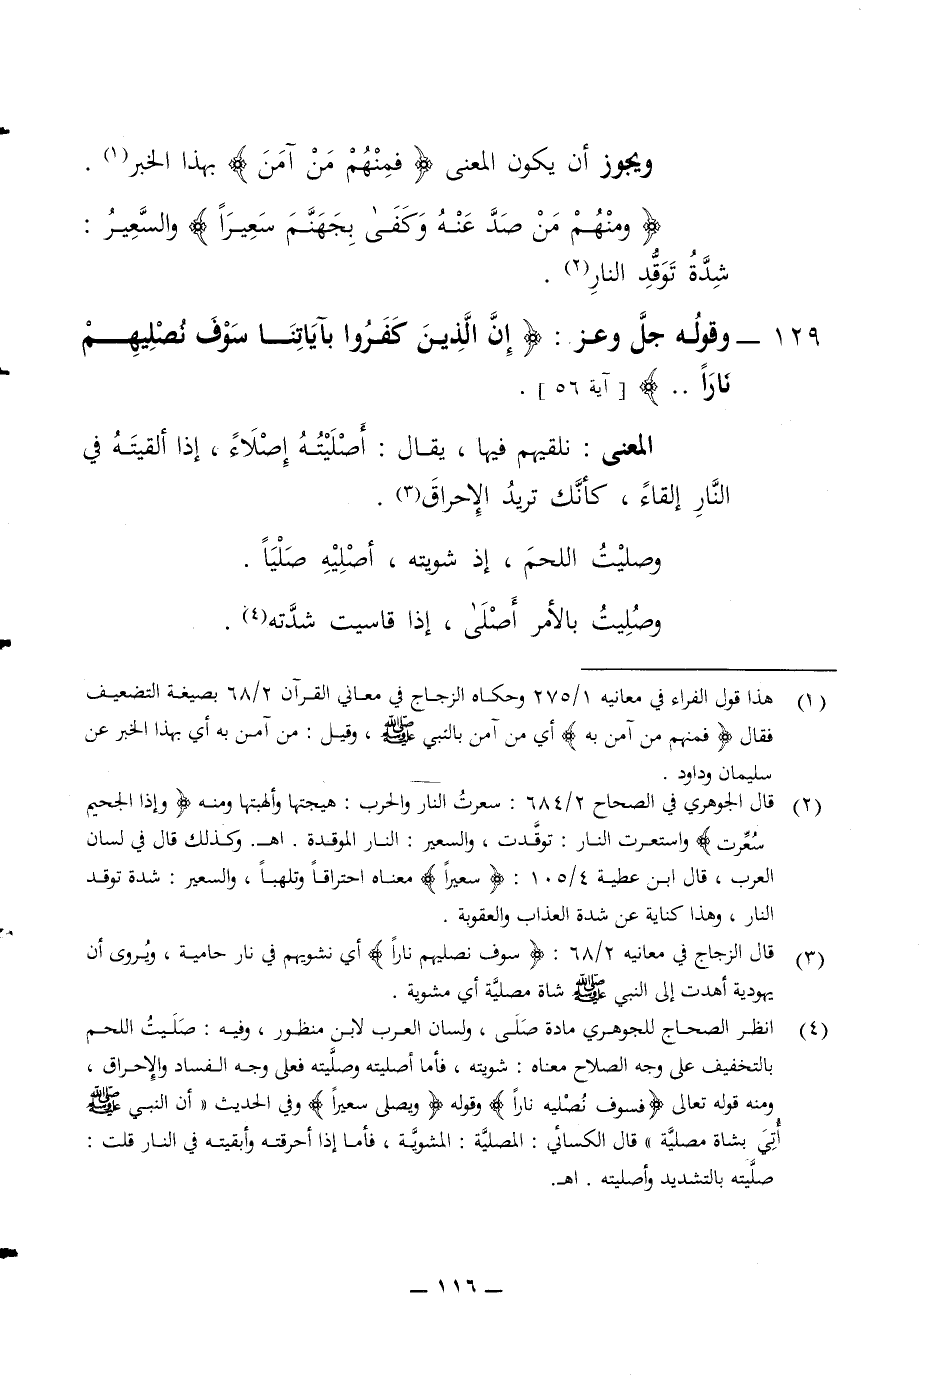 ويجوز أن يكون المعنى ﴿ فمِنْهُمْ مَنْ آمَنَ ﴾ بهذا الخبر(١) .
﴿ ومنْهُمْ مَنْ صَدَّ عَنْهُ وَكَفَىٰ بِجَهَنَّمَ سَعِيراً ﴾ والسَّعِيرُ :
شِدَّةُ تَوَقُّدِ النارِ(٢) .
١٢٩ ــ وقولُه جلَّ وعز : ﴿ إِنَّ الَّذِينَ كَفَرُوا بآيَاتِنَا سَوْفَ نُصْلِيهِمْ
نَارَاً .. ﴾ [ آية ٥٦ ] .
المعنى : نلقيهم فيها ، يقال : أَصْلَيْتُهُ إِصْلَاءً ، إذا ألقيتَهُ في
النَّارِ إلقاءً ، كأنَّك تريدُ الإِحراقَ(٣) .
وصليْتُ اللحمَ ، إذ شويته ، أصْلِيْهِ صَلْيَاً .
وصُلِيتُ بالأمر أَصْلَىٰ ، إذا قاسيت شدَّته(٤) .
(١) هذا قول الفراء في معانيه ٢٧٥/١ وحكاه الزجاج في معاني القرآن ٦٨/٢ بصيغة التضعيف
فقال ﴿ فمنهم من آمن به ﴾ أي من آمن بالنبي ﷺ ، وقيل : من آمن به أي بهذا الخبر عن
سليمان وداود .
(٢) قال الجوهري في الصحاح ٦٨٤/٢ : سعرتُ النار والحرب : هيجتها وألهبتها ومنه ﴿ وإذا الجحيم
سُعِّرت ﴾ واستعرت النار : توقَّدت ، والسعير : النار الموقدة . اهـ. وكذلك قال في لسان
العرب ، قال ابن عطية ١٠٥/٤ : ﴿ سعيراً ﴾ معناه احتراقاً وتلهباً ، والسعير : شدة توقد
النار ، وهذا كناية عن شدة العذاب والعقوبة .
(٣) قال الزجاج في معانيه ٦٨/٢ : ﴿ سوف نصليهم ناراً ﴾ أي نشويهم في نار حامية ، ويُروى أن
يهودية أهدت إلى النبي ﷺ شاة مصليَّة أي مشوية .
(٤) انظر الصحاح للجوهري مادة صَلَى ، ولسان العرب لابن منظور ، وفيه : صَلَيتُ اللحم
بالتخفيف على وجه الصلاح معناه : شويته ، فأما أصليته وصلَّيته فعلى وجه الفساد والإحراق ،
ومنه قوله تعالى ﴿فسوف نُصْليه ناراً ﴾ وقوله ﴿ ويصلى سعيراً ﴾ وفي الحديث « أن النبي ﷺ
أُتِيَ بشاة مصليَّة » قال الكسائي : المصليَّة : المشويَّة ، فأما إذا أحرقته وأبقيته في النار قلت :
صلَّيته بالتشديد وأصليته . اهـ.
ــ ١١٦ ــ